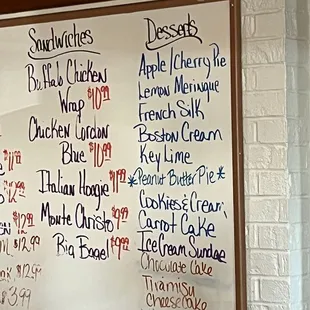 Sandwiches
Buffalo Chicken
Wrap $10.99
Chicken Cordon
Blue $10.99
Italian Hoagie $11.99
Monte Christo $9.99
Big Bagel $9.99
$12.99
$12.99
$3.99
Desserts
Apple/Cherry Pie
Lemon Meringue
French Silk
Boston Cream
Key Lime
*Peanut Butter Pie*
Cookies & Cream
Carrot Cake
Ice Cream Sundae
Chocolate Cake
Tiramisu
Cheesecake